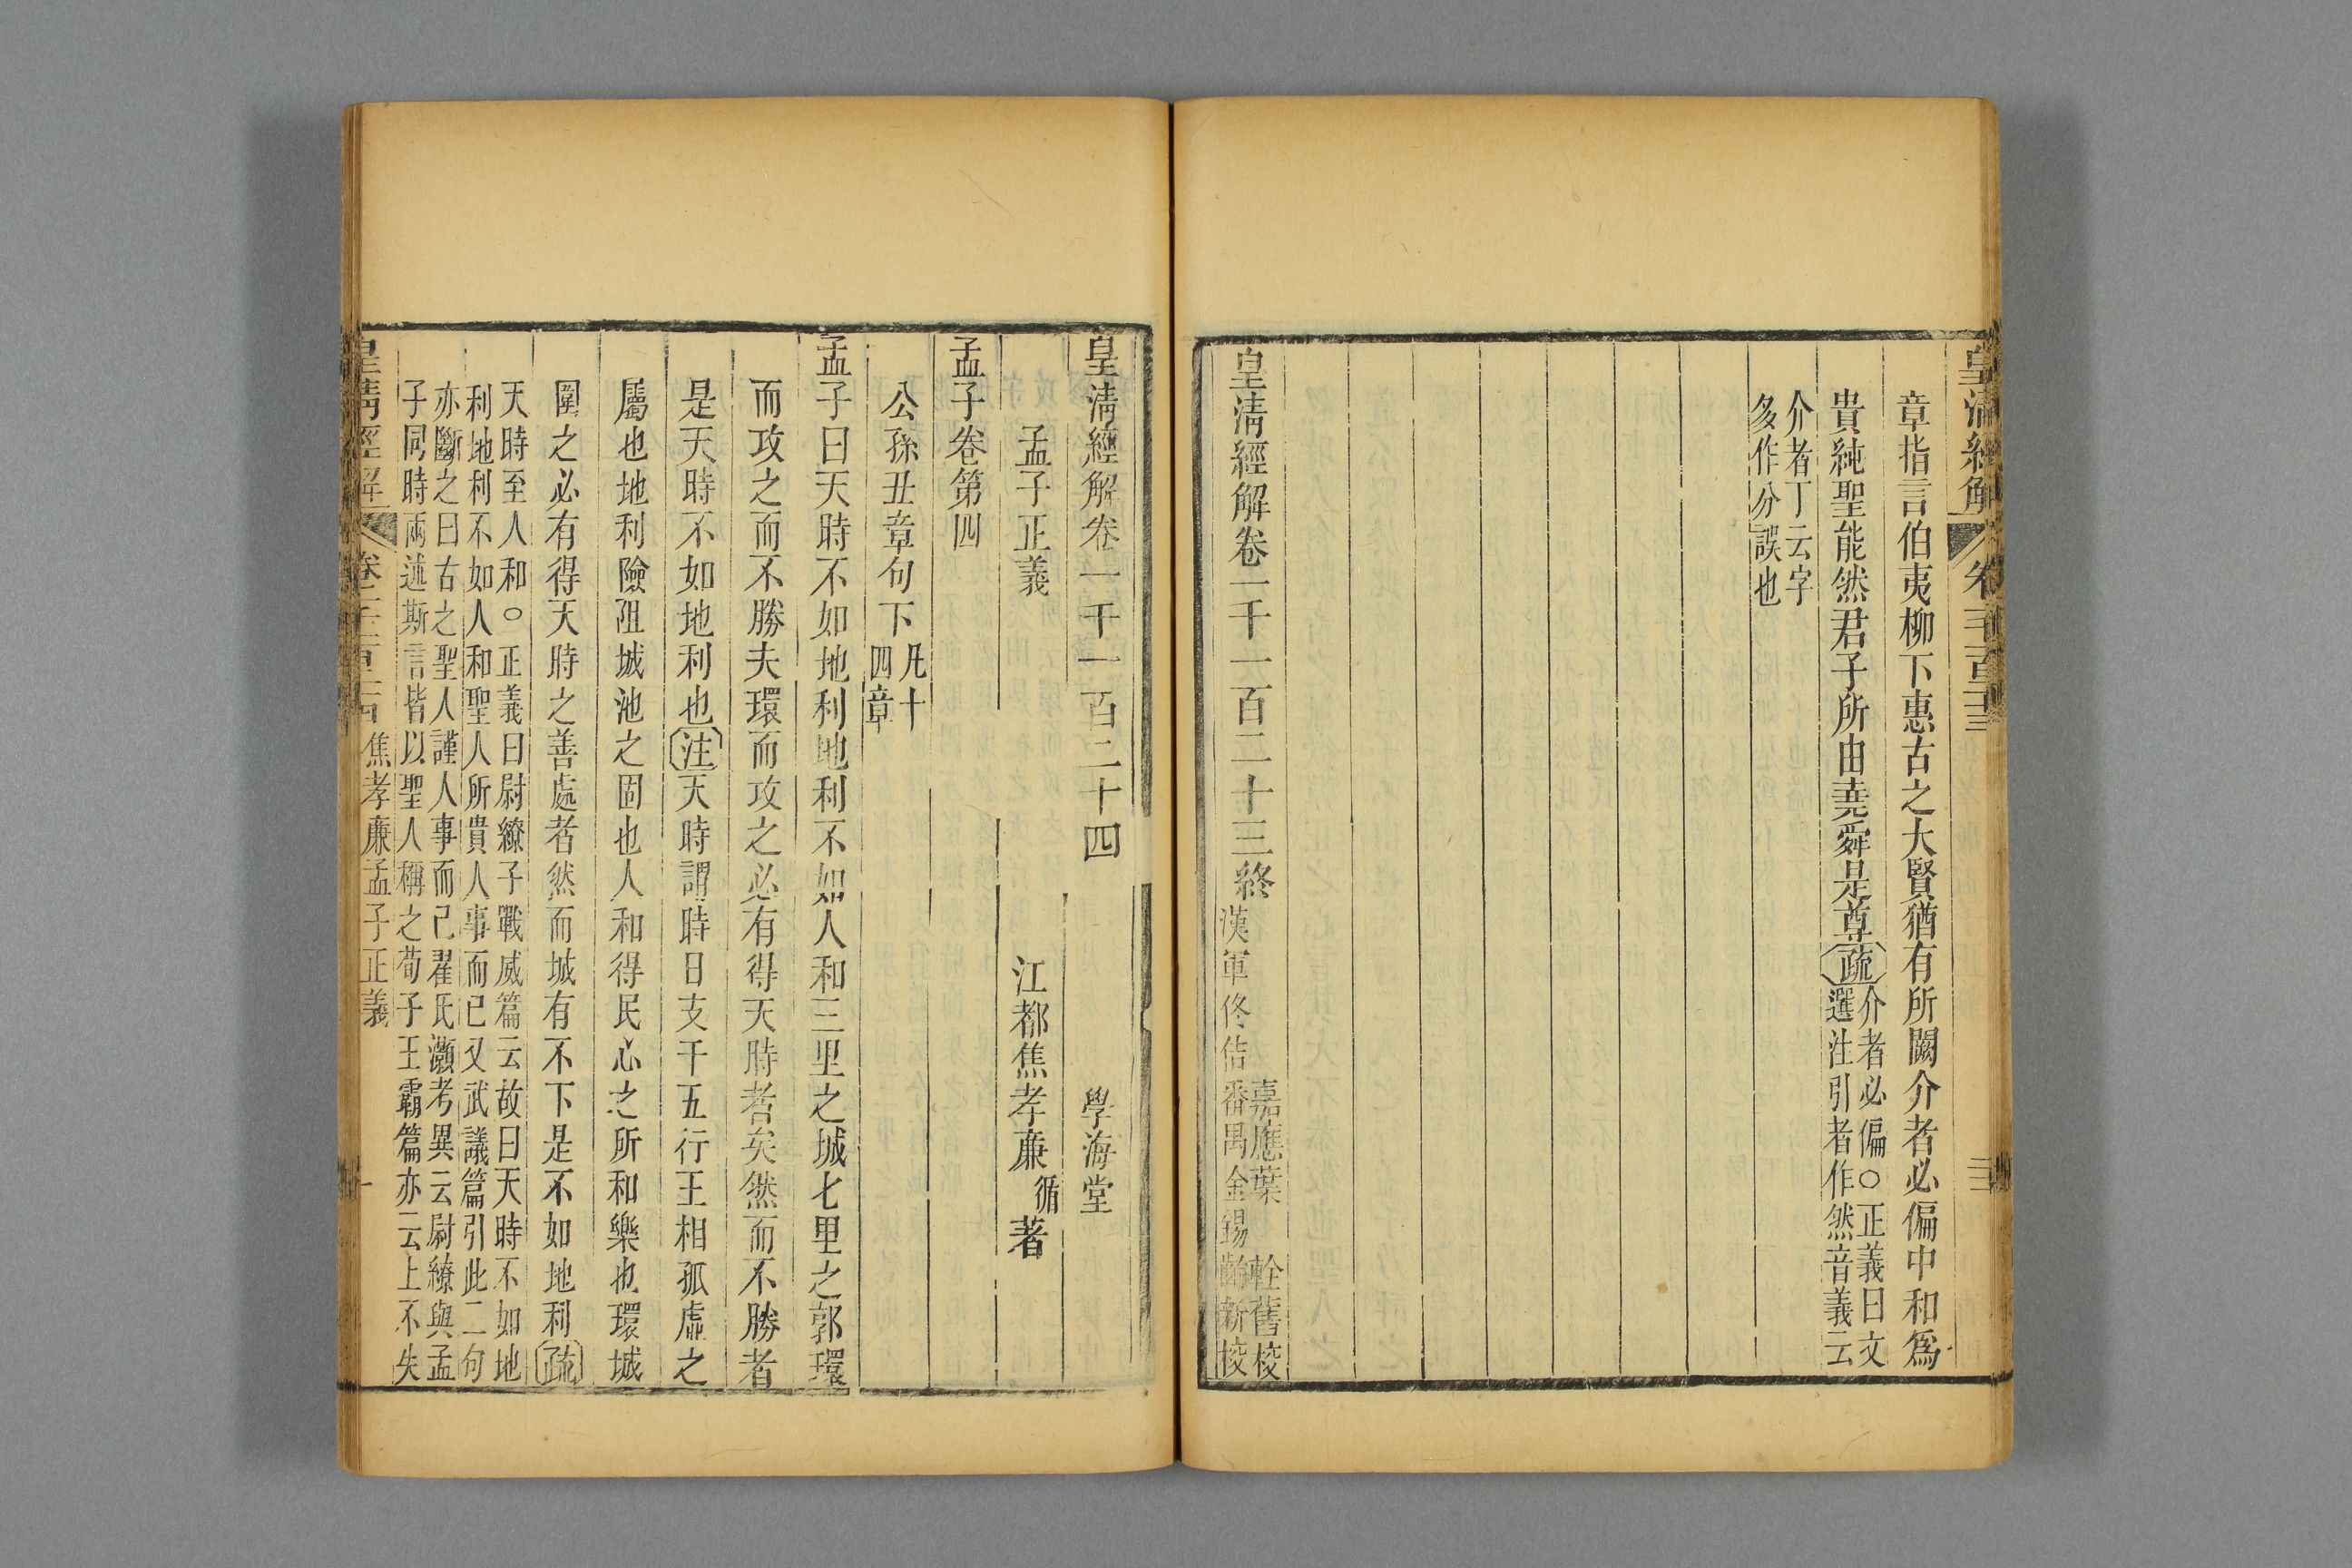 章指言伯夷柳下惠古之大賢猶有所闕介者必偏中和爲
貴純聖能然君子所由堯舜是尊疏介者必偏○正義曰文
選注引者作然音義云
介者丁云字
多作分誤也
皇清經解卷一千一百二十三終
嘉應葉 輇舊校
漢軍佟佶番禺金錫齡新校
皇清經解卷一千一百二十四
學海堂
孟子正義
江都焦孝廉循著
孟子卷第四
公孫丑章句下凡十
四章
孟子曰天時不如地利地利不如人和三里之城七里之郭環
而攻之而不勝夫環而攻之必有得天時者矣然而不勝者
是天時不如地利也注天時謂時日支干五行王相孤虛之
屬也地利險阻城池之固也人和得民心之所和樂也環城
圍之必有得天時之善處者然而城有不下是不如地利疏
天時至人和○正義曰尉繚子戰威篇云故曰天時不如地
利地利不如人和聖人所貴人事而已又武議篇引此二句
亦斷之曰古之聖人謹人事而已翟氏灝考異云尉繚與孟
子同時兩述斯言皆以聖人稱之荀子王霸篇亦云上不失
焦孝廉孟子正義
一